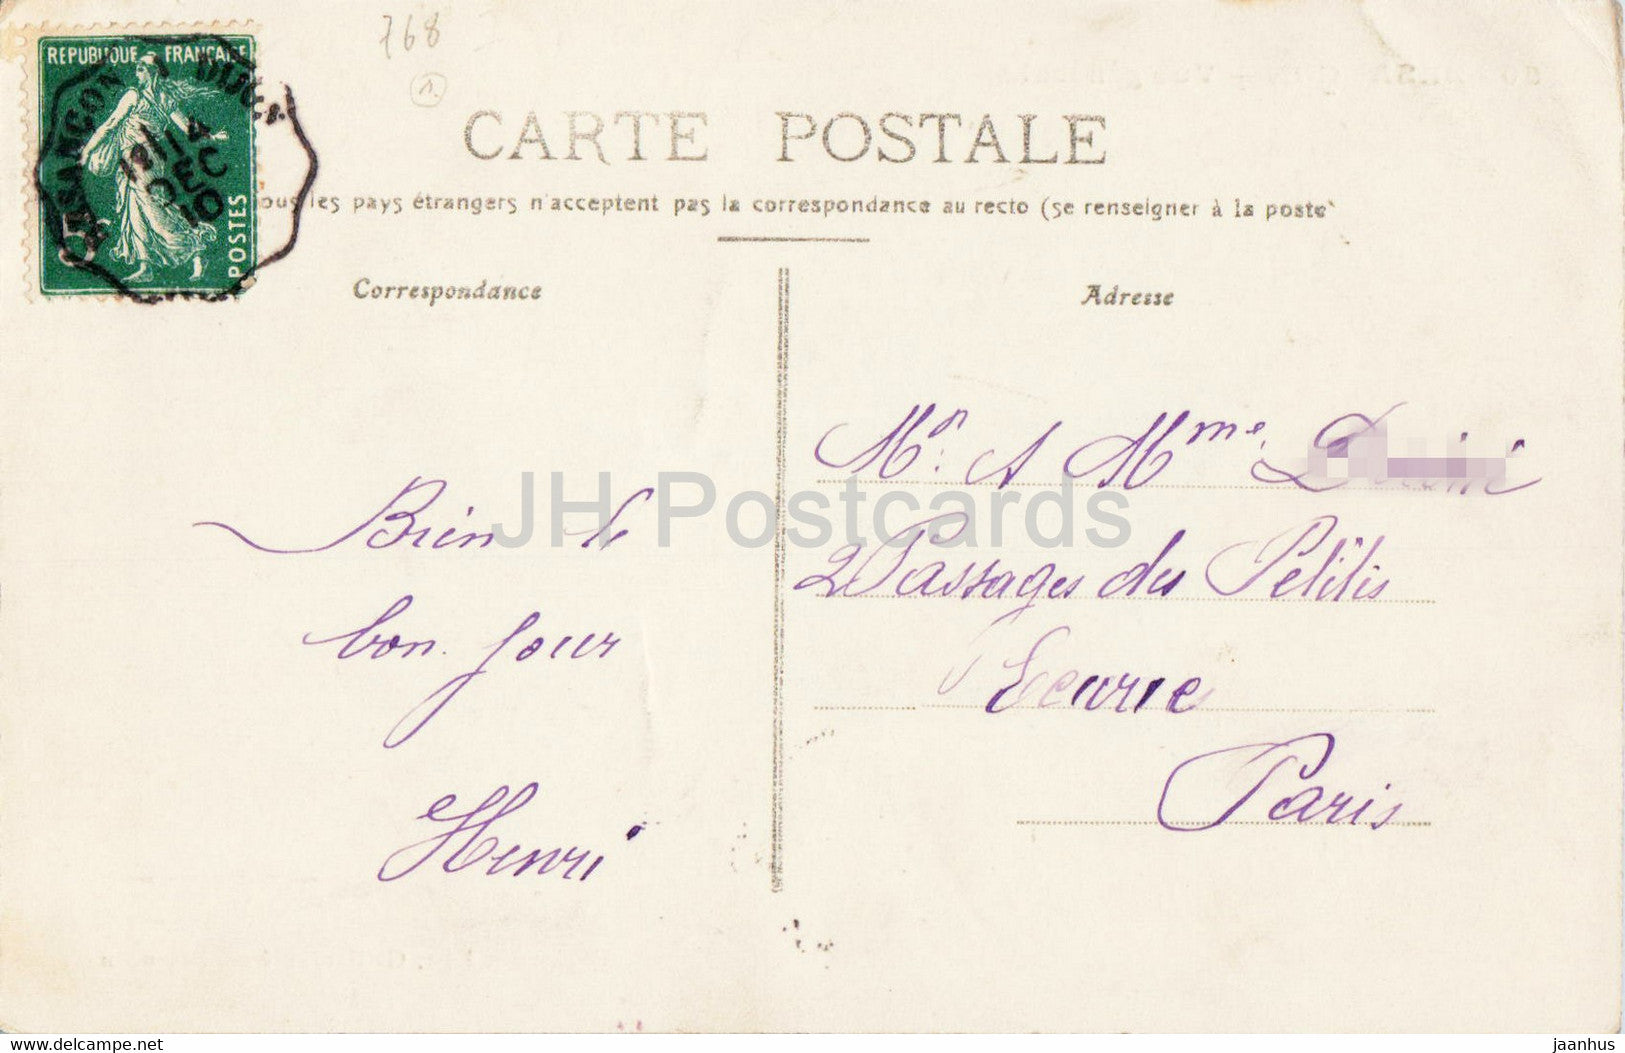 768
1.
REPUBLIQUE FRANÇAISE
BESANÇON A DIJON
14
DEC
10
POSTES
5c
CARTE POSTALE
ous les pays étrangers n'acceptent pas la correspondance au recto (se renseigner à la poste
Correspondance
Adresse
Mr. A Mme.
JH Postcards
Bien le
2 Passages des Petites
bon jour
Ecurie
Paris
Henri
delcampe.net
jaanhus